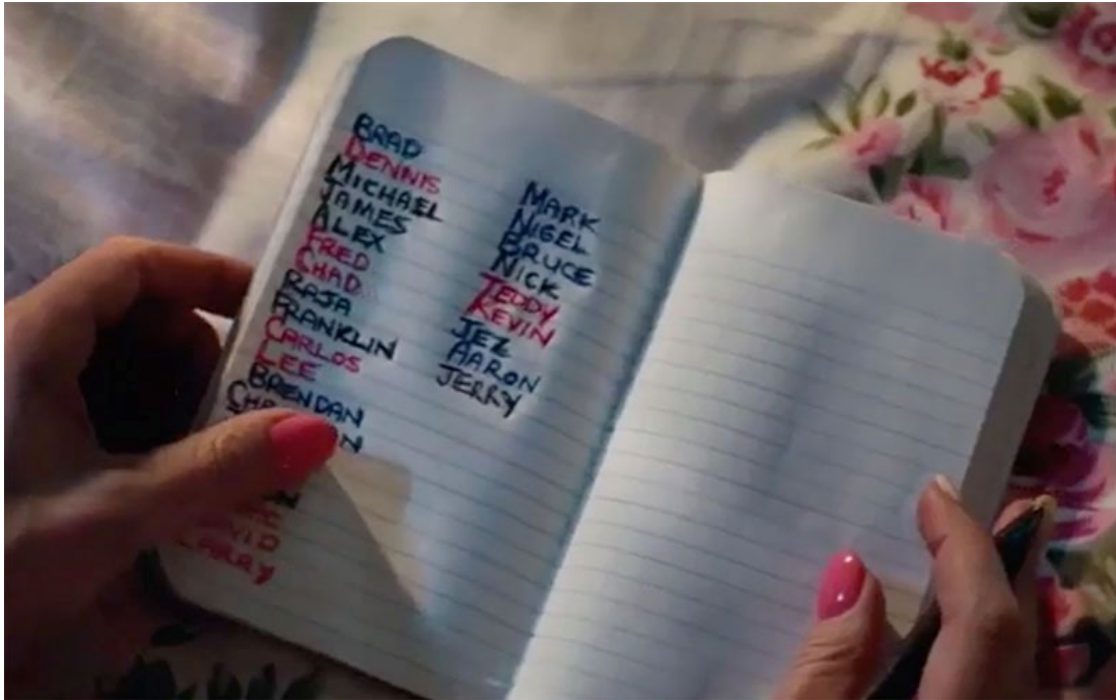 BRAD
DENNIS
MICHAEL
JAMES
ALEX
FRED
CHAD
RAJA
FRANKLIN
CARLOS
LEE
BRENDAN
LARRY
MARK
NIGEL
BRUCE
NICK
TEDDY
KEVIN
JEZ
AARON
JERRY